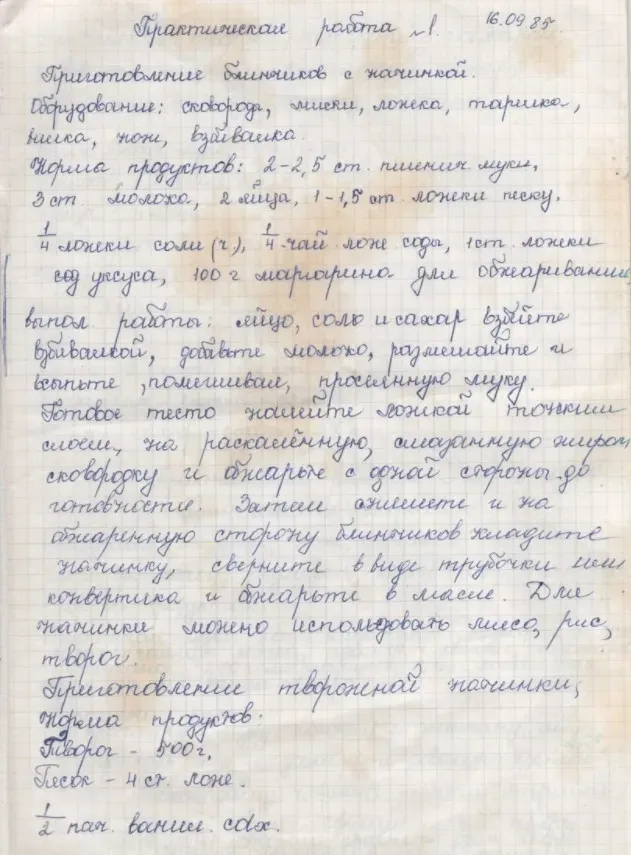 Практическая работа №1. 16.09.85.
Приготовление блинчиков с начинкой.
Оборудование: сковорода, миски, ложка, тарелка,
вилка, нож, взбивалка.
Норма продуктов: 2-2,5 ст. пшенич муки,
3 ст. молока, 2 яйца, 1-1,5 ст. ложки песку,
1/4 ложки соли (ч), 1/4 чай лож соды, 1 ст. ложки
уксуса, 100 г маргарина для обжаривания
выпол. работы: яйцо, соль и сахар взбейте
взбивалкой, добавьте молоко, размешайте и
всыпьте, помешивая, просеянную муку.
Готовое тесто налейте ложкой тонким
слоем, на раскалённую, смазанную жиром
сковородку и обжарьте с одной стороны до
готовности. Затем снимете и на
обжаренную сторону блинчиков кладите
начинку, сверните в виде трубочки или
конвертика и обжарьте в масле. Для
начинки можно использовать мясо, рис,
творог.
Приготовление творожной начинки,
Норма продуктов.
Творог - 500г,
Песок - 4 ст. лож.
1/2 пач. ванил. сах.